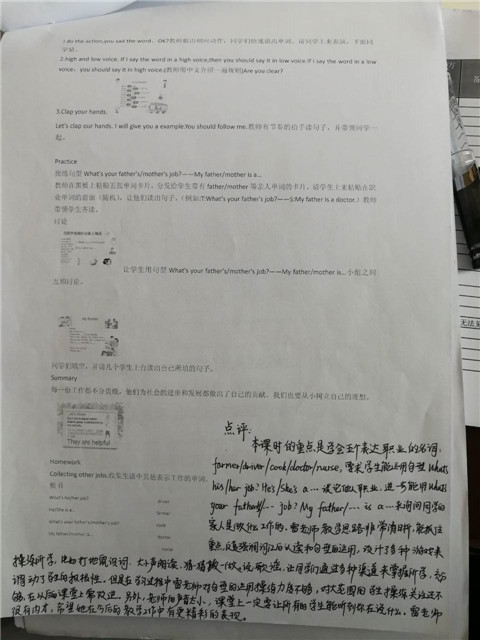 1.I do the action,you said the word. OK?教师做出相应动作，同学们快速说出单词。请同学上来表演，下面同
学猜。
2.high and low voice. If I say the word in a high voice,then you should say it in low voice.If I say the word in a low
voice，you should say it in high voice.(教师用中文介绍一遍规则)Are you clear?
3.Clap your hands.
Let's clap our hands. I will give you a example.You should follow me.教师有节奏的拍手读句子，并带领同学一
起。
Practice
操练句型 What's your father's/mother's job?——My father/mother is a…
教师在黑板上粘贴五张单词卡片，分发给学生带有 father/mother 等亲人单词的卡片，请学生上来粘贴在职
业单词的前面（随机），让他们读出句子。（例如:T:What's your father's job?——S:My father is a doctor.）教师
带领学生齐读。
讨论
让学生用句型 What's your father's/mother's job?——My father/mother is…小组之间
互相讨论。
同学们填空，并请几个学生上台读出自己所填的句子。
Summary
每一份工作都不分贵贱，他们为社会的进步和发展都做出了自己的贡献。我们也要从小树立自己的理想。
They are helpful
Homework
Collecting other jobs.收集生活中其他表示工作的单词。
板书
What's his/her job?
driver
He/She is a…
farmer
What's your father's/mother's job?
cook
My father/mother is…
doctor
nurse
点评：
本课时的重点是学会五个表达职业的名词：
farmer/driver/cook/doctor/nurse，需求学生能运用句型 What's
his/her job? He's/She's a … 谈论他人职业，进一步能用What's
your father's/… job? My father/… is a …来询问同学的
家人是做什么工作的。雷老师教学思路非常清晰，能抓住
重点，反复强调词汇的认读和句型的运用，设计了多种游戏来
操练所学，比如打地鼠识词、大小声朗读、猜猜做一做、说歌谣，让同学们通过多种渠道来掌握所学，充分
调动了学生的积极性。但是在教学过程中雷老师对句型的运用操练力度不够，对大范围的学生操练关注还不
够，在以后课堂上需改进。另外，老师的声音太小，课堂上一定要让所有的学生能听到你在说什么。雷老师
很有内才，希望他在今后的教学工作中有更精彩的表现。